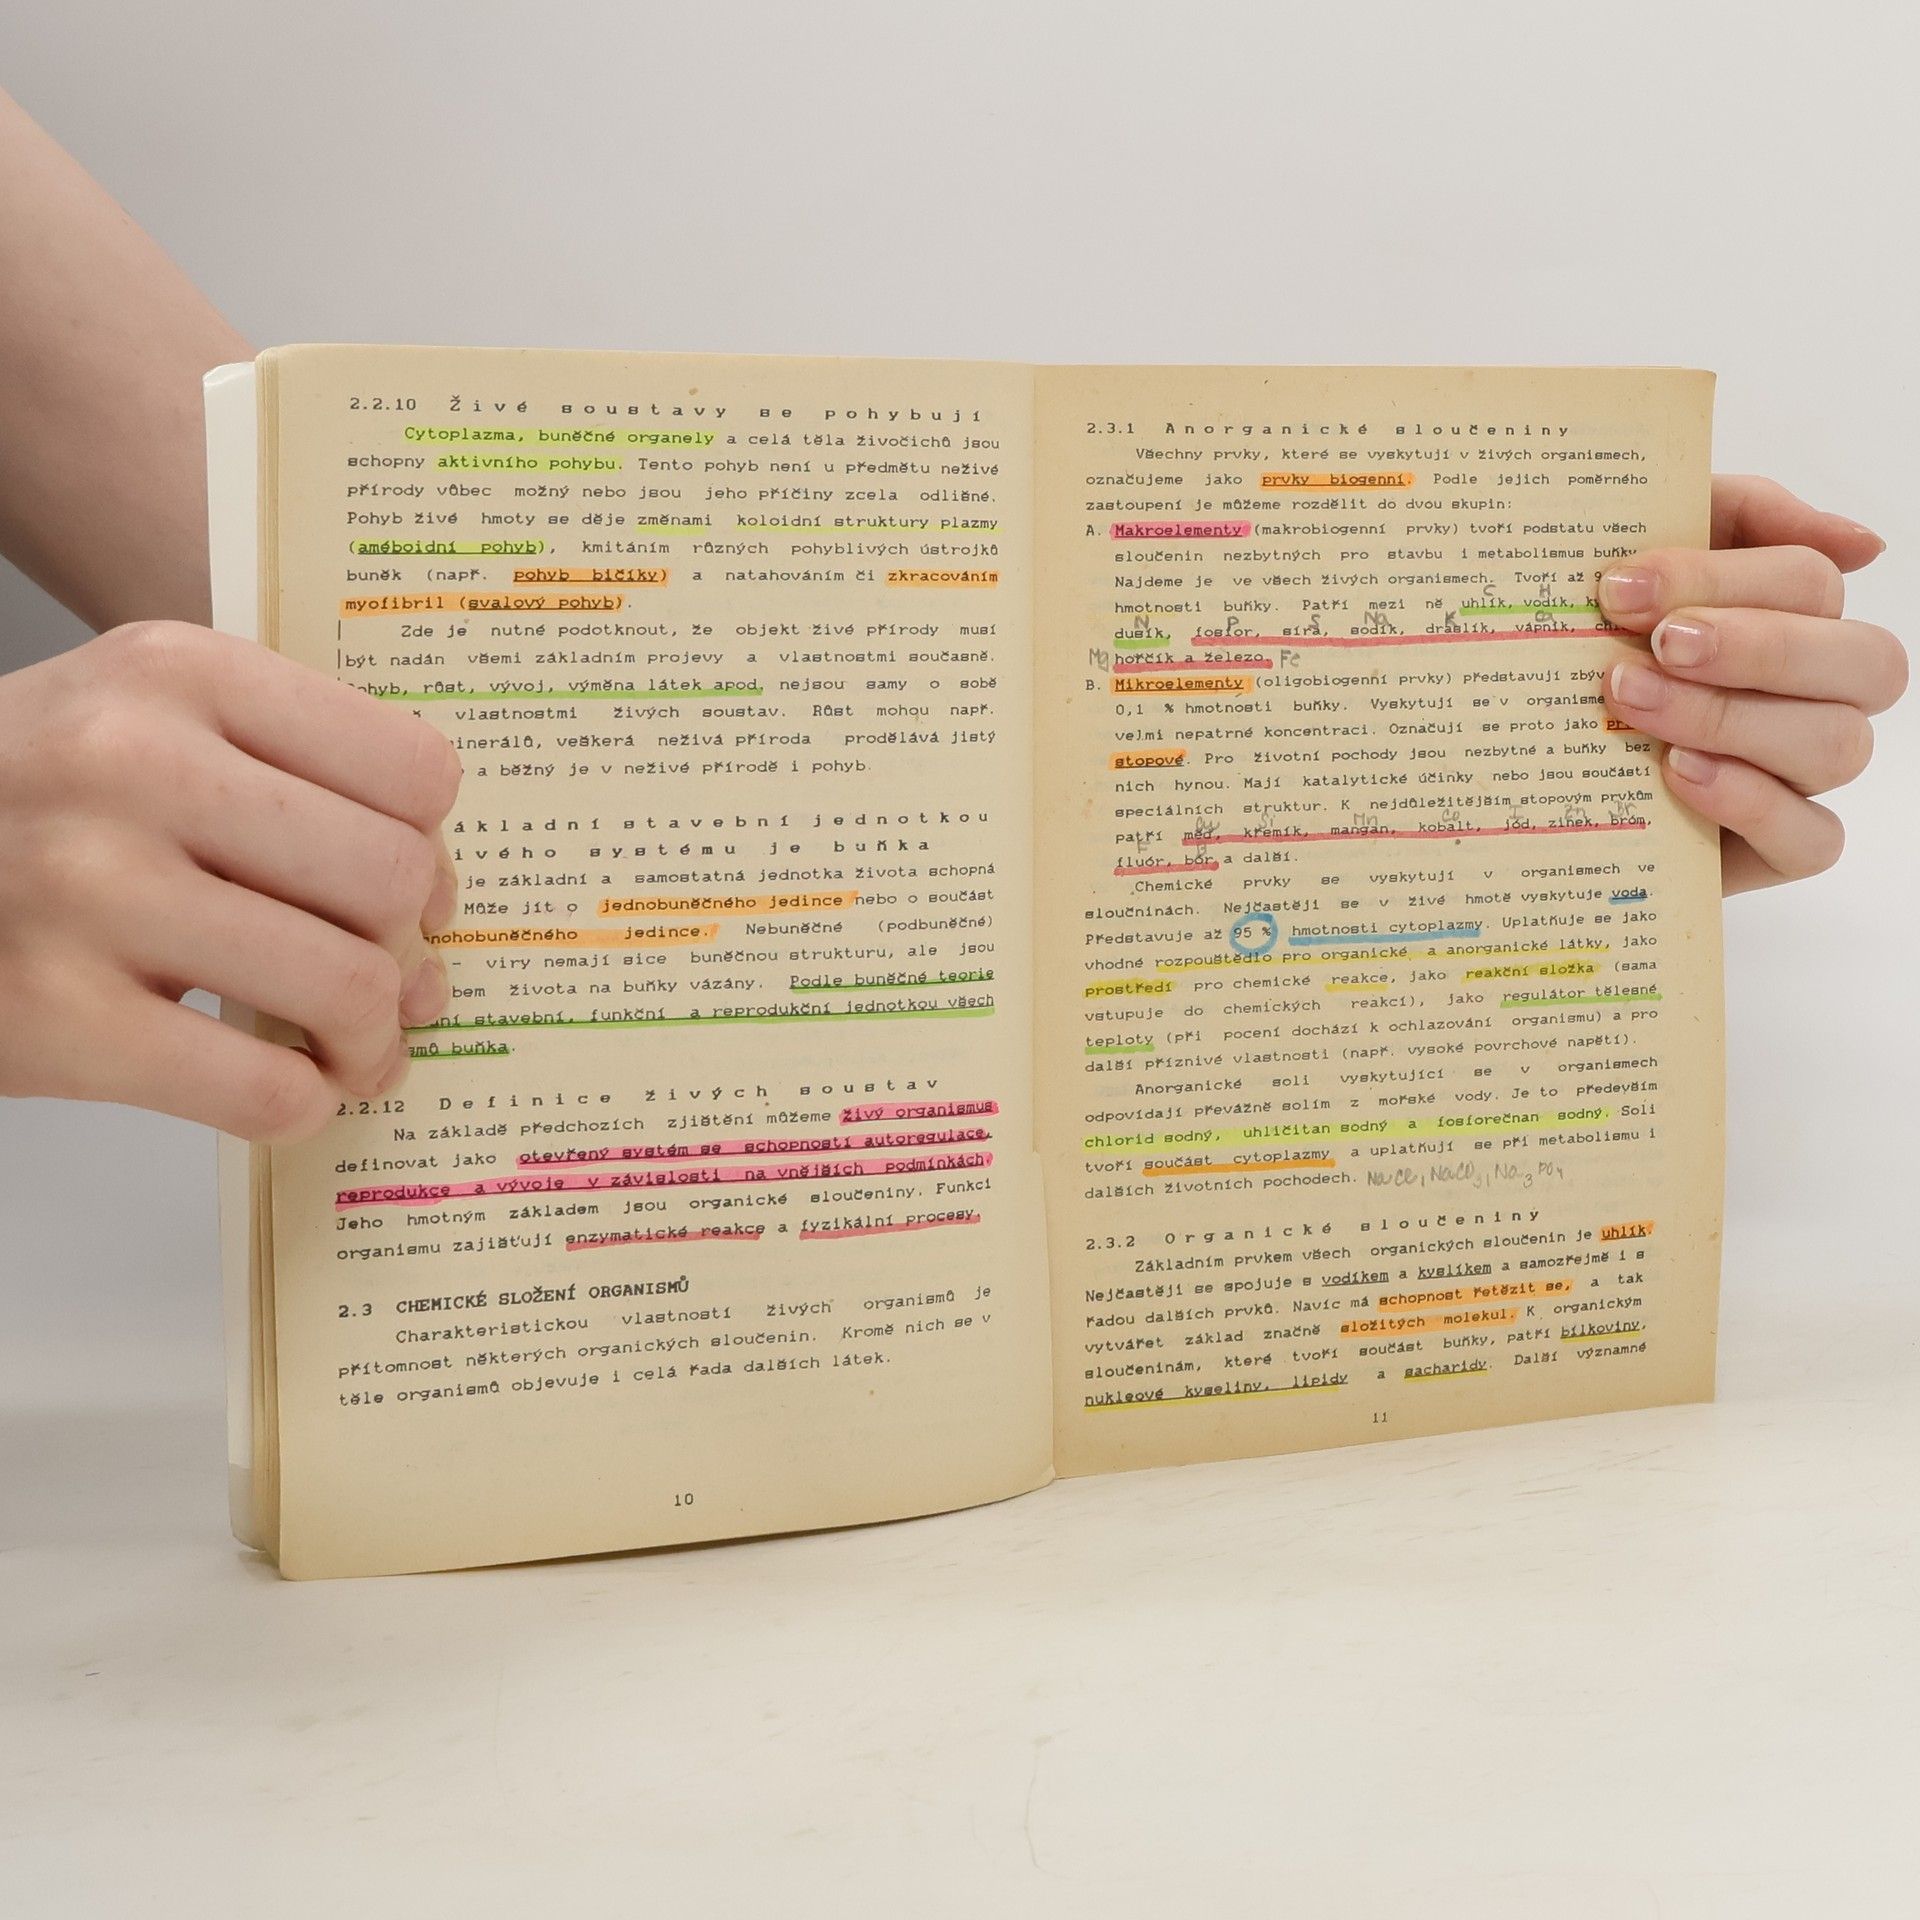 2.2.10 Živé soustavy se pohybují
Cytoplazma, buněčné organely a celá těla živočichů jsou
schopny aktivního pohybu. Tento pohyb není u předmětu neživé
přírody vůbec možný nebo jsou jeho příčiny zcela odlišné.
Pohyb živé hmoty se děje změnami koloidní struktury plazmy
(améboidní pohyb), kmitáním různých pohyblivých ústrojků
buněk (např. pohyb bičíky) a natahováním či zkracováním
myofibril (svalový pohyb).
Zde je nutné podotknout, že objekt živé přírody musí
být nadán všemi základním projevy a vlastnostmi současně.
Pohyb, růst, vývoj, výměna látek apod. nejsou samy o sobě
vlastnostmi živých soustav. Růst mohou např.
minerálů, veškerá neživá příroda prodělává jistý
a běžný je v neživé přírodě i pohyb.
ákladní stavební jednotkou
ivého systému je buňka
je základní a samostatná jednotka života schopná
Může jít o jednobuněčného jedince nebo o součást
nohobuněčného jedince. Nebuněčné (podbuněčné)
- viry nemají sice buněčnou strukturu, ale jsou
bem života na buňky vázány. Podle buněčné teorie
ní stavební, funkční a reprodukční jednotkou všech
smů buňka.
2.2.12 Definice živých soustav
Na základě předchozích zjištění můžeme živý organismus
definovat jako otevřený systém se schopností autoregulace,
reprodukce a vývoje v závislosti na vnějších podmínkách.
Jeho hmotným základem jsou organické sloučeniny. Funkci
organismu zajišťují enzymatické reakce a fyzikální procesy.
2.3 CHEMICKÉ SLOŽENÍ ORGANISMŮ
Charakteristickou vlastností živých organismů je
přítomnost některých organických sloučenin. Kromě nich se v
těle organismů objevuje i celá řada dalších látek.
10
2.3.1 Anorganické sloučeniny
Všechny prvky, které se vyskytují v živých organismech,
označujeme jako prvky biogenní. Podle jejich poměrného
zastoupení je můžeme rozdělit do dvou skupin:
A. Makroelementy (makrobiogenní prvky) tvoří podstatu všech
sloučenin nezbytných pro stavbu i metabolismus buňky.
Najdeme je ve všech živých organismech. Tvoří až 9
C H
hmotnosti buňky. Patří mezi ně uhlík, vodík, ky
N P S Na K Ca
dusík, fosfor, síra, sodík, draslík, vápník, chl
Mg hořčík a železo. Fe
B. Mikroelementy (oligobiogenní prvky) představují zbýv
0,1 % hmotnosti buňky. Vyskytují se v organisme
velmi nepatrné koncentraci. Označují se proto jako pr
stopové. Pro životní pochody jsou nezbytné a buňky bez
nich hynou. Mají katalytické účinky nebo jsou součástí
speciálních struktur. K nejdůležitějším stopovým prvkům
Cu Si Mn Co I Zn Br
patří měď, křemík, mangan, kobalt, jód, zinek, bróm,
F B
fluór, bór a další.
Chemické prvky se vyskytují v organismech ve
sloučninách. Nejčastěji se v živé hmotě vyskytuje voda.
Představuje až 95 % hmotnosti cytoplazmy. Uplatňuje se jako
vhodné rozpouštědlo pro organické a anorganické látky, jako
prostředí pro chemické reakce, jako reakční složka (sama
vstupuje do chemických reakcí), jako regulátor tělesné
teploty (při pocení dochází k ochlazování organismu) a pro
další příznivé vlastnosti (např. vysoké povrchové napětí).
Anorganické soli vyskytující se v organismech
odpovídají převážně solím z mořské vody. Je to především
chlorid sodný, uhličitan sodný a fosforečnan sodný. Soli
tvoří součást cytoplazmy a uplatňují se při metabolismu i
dalších životních pochodech. NaCl, NaCO3, Na3PO4
2.3.2 Organické sloučeniny
Základním prvkem všech organických sloučenin je uhlík.
Nejčastěji se spojuje s vodíkem a kyslíkem a samozřejmě i s
řadou dalších prvků. Navíc má schopnost řetězit se, a tak
vytvářet základ značně složitých molekul. K organickým
sloučeninám, které tvoří součást buňky, patří bílkoviny,
nukleové kyseliny, lipidy a sacharidy. Další významné
11